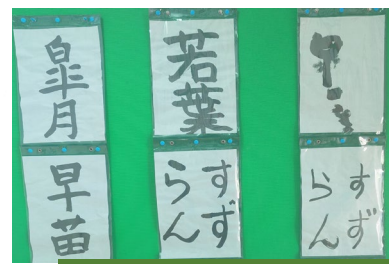 皐月
若葉
早苗
すず
らん
すず
らん